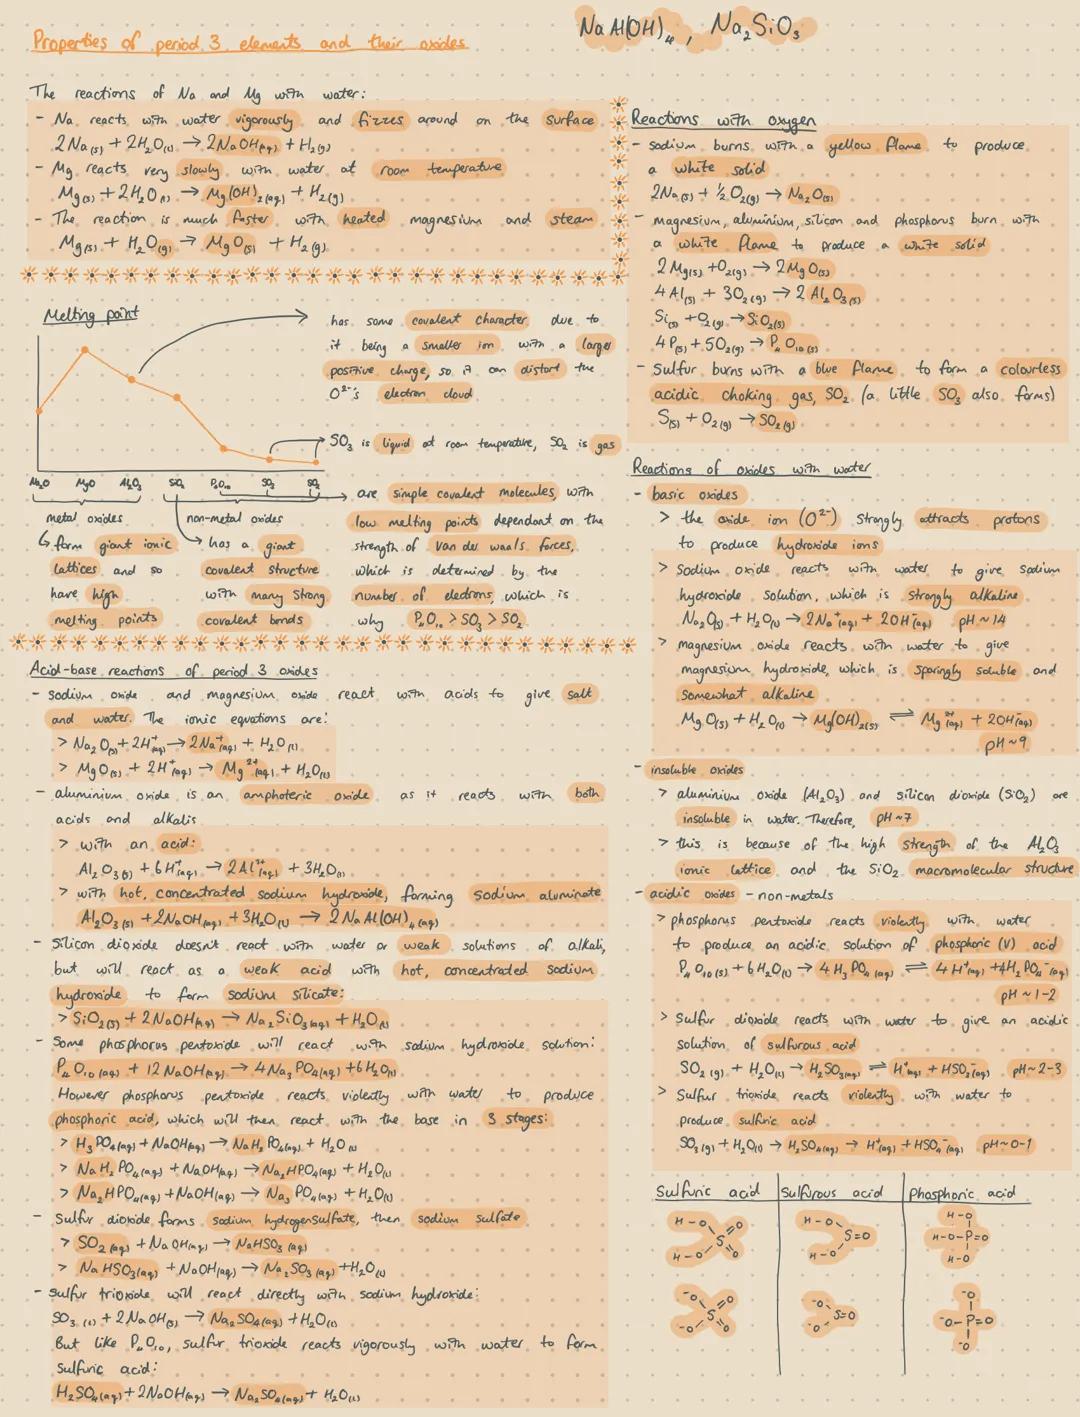 NaAl(OH)₄, Na₂SiO₃
Properties of period 3 elements and their oxides
The reactions of Na and Mg with water:
- Na reacts with water vigorously and fizzes around on the surface
2Na(s) + 2H₂O(l) → 2NaOH(aq) + H₂(g)
- Mg reacts very slowly with water at room temperature
Mg(s) + 2H₂O(l) → Mg(OH)₂(aq) + H₂(g)
- The reaction is much faster with heated magnesium and steam
Mg(s) + H₂O(g) → MgO(s) + H₂(g)
Melting point
has some covalent character due to
it being a smaller ion with a larger
positive charge, so it can distort the
O²⁻'s electron cloud
SO₃ is liquid at room temperature, SO₂ is gas
Na₂O MgO Al₂O₃ SiO₂ P₄O₁₀ SO₃ SO₂
metal oxides
↳ form giant ionic
lattices and so
have high
melting points
non-metal oxides
has a giant
covalent structure
with many strong
covalent bonds
are simple covalent molecules, with
low melting points dependant on the
strength of van der waals forces,
which is determined by the
number of electrons, which is
why P₄O₁₀ > SO₃ > SO₂
Acid-base reactions of period 3 oxides
- sodium oxide and magnesium oxide react with acids to give salt
and water. The ionic equations are:
> Na₂O(s) + 2H⁺(aq) → 2Na⁺(aq) + H₂O(l)
> MgO(s) + 2H⁺(aq) → Mg²⁺(aq) + H₂O(l)
- aluminium oxide is an amphoteric oxide as it reacts with both
acids and alkalis
> with an acid:
Al₂O₃(s) + 6H⁺(aq) → 2Al³⁺(aq) + 3H₂O(l)
> with hot, concentrated sodium hydroxide, forming sodium aluminate
Al₂O₃(s) + 2NaOH(aq) + 3H₂O(l) → 2NaAl(OH)₄(aq)
- Silicon dioxide doesn't react with water or weak solutions of alkali,
but will react as a weak acid with hot, concentrated sodium
hydroxide to form sodium silicate:
> SiO₂(s) + 2NaOH(aq) → Na₂SiO₃(aq) + H₂O(l)
- Some phosphorus pentoxide will react with sodium hydroxide solution:
P₄O₁₀(aq) + 12NaOH(aq) → 4Na₃PO₄(aq) + 6H₂O(l)
However phosphorus pentoxide reacts violently with water to produce
phosphoric acid, which will then react with the base in 3 stages:
> H₃PO₄(aq) + NaOH(aq) → NaH₂PO₄(aq) + H₂O(l)
> NaH₂PO₄(aq) + NaOH(aq) → Na₂HPO₄(aq) + H₂O(l)
> Na₂HPO₄(aq) + NaOH(aq) → Na₃PO₄(aq) + H₂O(l)
- Sulfur dioxide forms sodium hydrogensulfate, then sodium sulfate
> SO₂(aq) + NaOH(aq) → NaHSO₃(aq)
> NaHSO₃(aq) + NaOH(aq) → Na₂SO₃(aq) + H₂O(l)
- sulfur trioxide will react directly with sodium hydroxide:
SO₃(l) + 2NaOH(s) → Na₂SO₄(aq) + H₂O(l)
But like P₄O₁₀, sulfur trioxide reacts vigorously with water to form
sulfuric acid:
H₂SO₄(aq) + 2NaOH(aq) → Na₂SO₄(aq) + H₂O(l)
Reactions with oxygen
- sodium burns with a yellow flame to produce
a white solid
2Na(s) + ½O₂(g) → Na₂O(s)
- magnesium, aluminium, silicon and phosphorus burn with
a white flame to produce a white solid
2Mg(s) + O₂(g) → 2MgO(s)
4Al(s) + 3O₂(g) → 2Al₂O₃(s)
Si(s) + O₂(g) → SiO₂(s)
4P(s) + 5O₂(g) → P₄O₁₀(s)
- Sulfur burns with a blue flame to form a colourless
acidic choking gas, SO₂ (a little SO₃ also forms)
S(s) + O₂(g) → SO₂(g)
Reactions of oxides with water
- basic oxides
> the oxide ion (O²⁻) strongly attracts protons
to produce hydroxide ions
> Sodium oxide reacts with water to give sodium
hydroxide solution, which is strongly alkaline
Na₂O(s) + H₂O(l) → 2Na⁺(aq) + 2OH⁻(aq) pH ~ 14
> magnesium oxide reacts with water to give
magnesium hydroxide, which is sparingly soluble and
somewhat alkaline
MgO(s) + H₂O(l) → Mg(OH)₂(s) ⇌ Mg²⁺(aq) + 2OH⁻(aq)
pH ~ 9
- insoluble oxides
> aluminium oxide (Al₂O₃) and silicon dioxide (SiO₂) are
insoluble in water. Therefore, pH ~ 7
> this is because of the high strength of the Al₂O₃
ionic lattice and the SiO₂ macromolecular structure
- acidic oxides - non-metals
> phosphorus pentoxide reacts violently with water
to produce an acidic solution of phosphoric (V) acid
P₄O₁₀(s) + 6H₂O(l) → 4H₃PO₄(aq) ⇌ 4H⁺(aq) + 4H₂PO₄⁻(aq)
pH ~ 1-2
> Sulfur dioxide reacts with water to give an acidic
solution of sulfurous acid
SO₂(g) + H₂O(l) → H₂SO₃(aq) ⇌ H⁺(aq) + HSO₃⁻(aq) pH ~ 2-3
> Sulfur trioxide reacts violently with water to
produce sulfuric acid
SO₃(g) + H₂O(l) → H₂SO₄(aq) → H⁺(aq) + HSO₄⁻(aq) pH ~ 0-1
Sulfuric acid Sulfurous acid Phosphoric acid
H-O O H-O H-O
S S=O H-O-P=O
H-O O H-O H-O
⁻O O ⁻O ⁻O
S S=O ⁻O-P=O
⁻O O ⁻O ⁻O